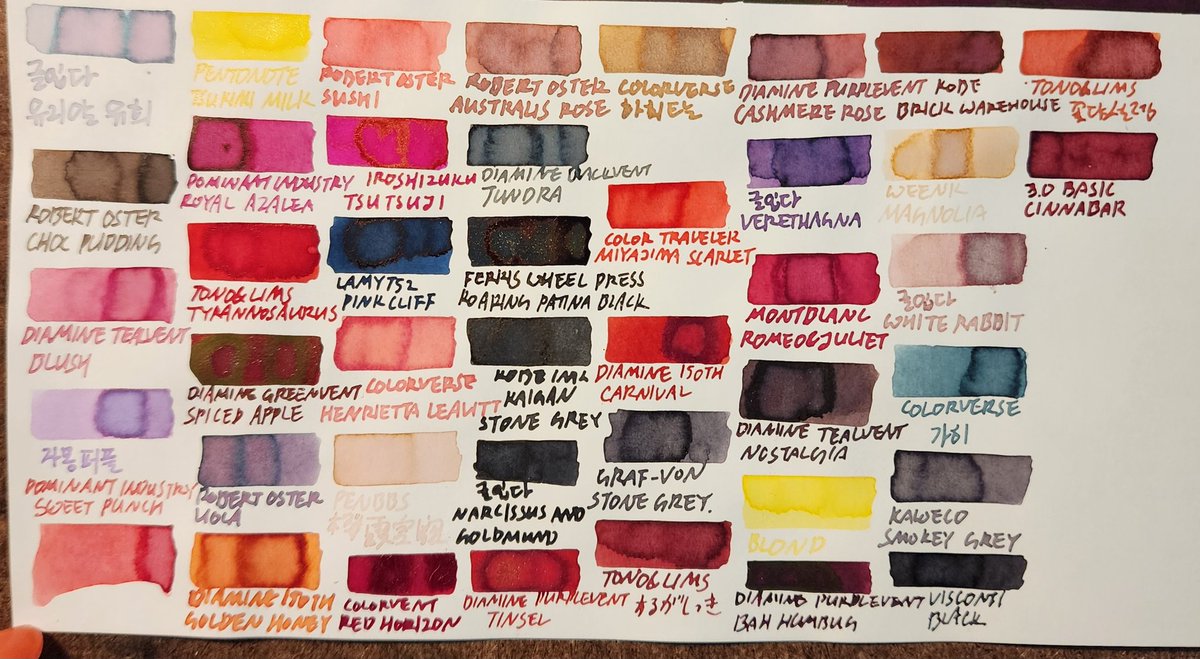 글입다
유리알 유희
PENTONOTE
MILK
ROBERT OSTER
SUSHI
ROBERT OSTER
AUSTRALIS ROSE
COLORVERSE
DIAMINE PURPLEVENT
CASHMERE ROSE
KOBE
BRICK WAREHOUSE
TONO&LIMS
ROBERT OSTER
CHOC PUDDING
DOMINANT INDUSTRY
ROYAL AZALEA
IROSHIZUKU
TSUTSUJI
DIAMINE INKVENT
TUNDRA
COLOR TRAVELER
MIYAJIMA SCARLET
글입다
VERETHAGNA
WEENK
MAGNOLIA
3.0 BASIC
CINNABAR
DIAMINE TEALVENT
BLUSH
TONO&LIMS
TYRANNOSAURUS
LAMY T52
PINK CLIFF
FERRIS WHEEL PRESS
ROARING PATINA BLACK
MONTBLANC
ROMEO&JULIET
글입다
WHITE RABBIT
DIAMINE GREENVENT
SPICED APPLE
COLORVERSE
HENRIETTA LEAVITT
KOBE INK
KAIGAN
STONE GREY
DIAMINE 150TH
CARNIVAL
DIAMINE TEALVENT
NOSTALGIA
COLORVERSE
자몽퍼플
DOMINANT INDUSTRY
SWEET PUNCH
ROBERT OSTER
VIOLA
PENBBS
글입다
NARCISSUS AND
GOLDMUND
GRAF-VON
STONE GREY.
BLOND
KAWECO
SMOKEY GREY
DIAMINE 150TH
GOLDEN HONEY
COLORVENT
RED HORIZON
DIAMINE PURPLEVENT
TINSEL
TONO&LIMS
DIAMINE PURPLEVENT
BAH HUMBUG
VISCONTI
BLACK